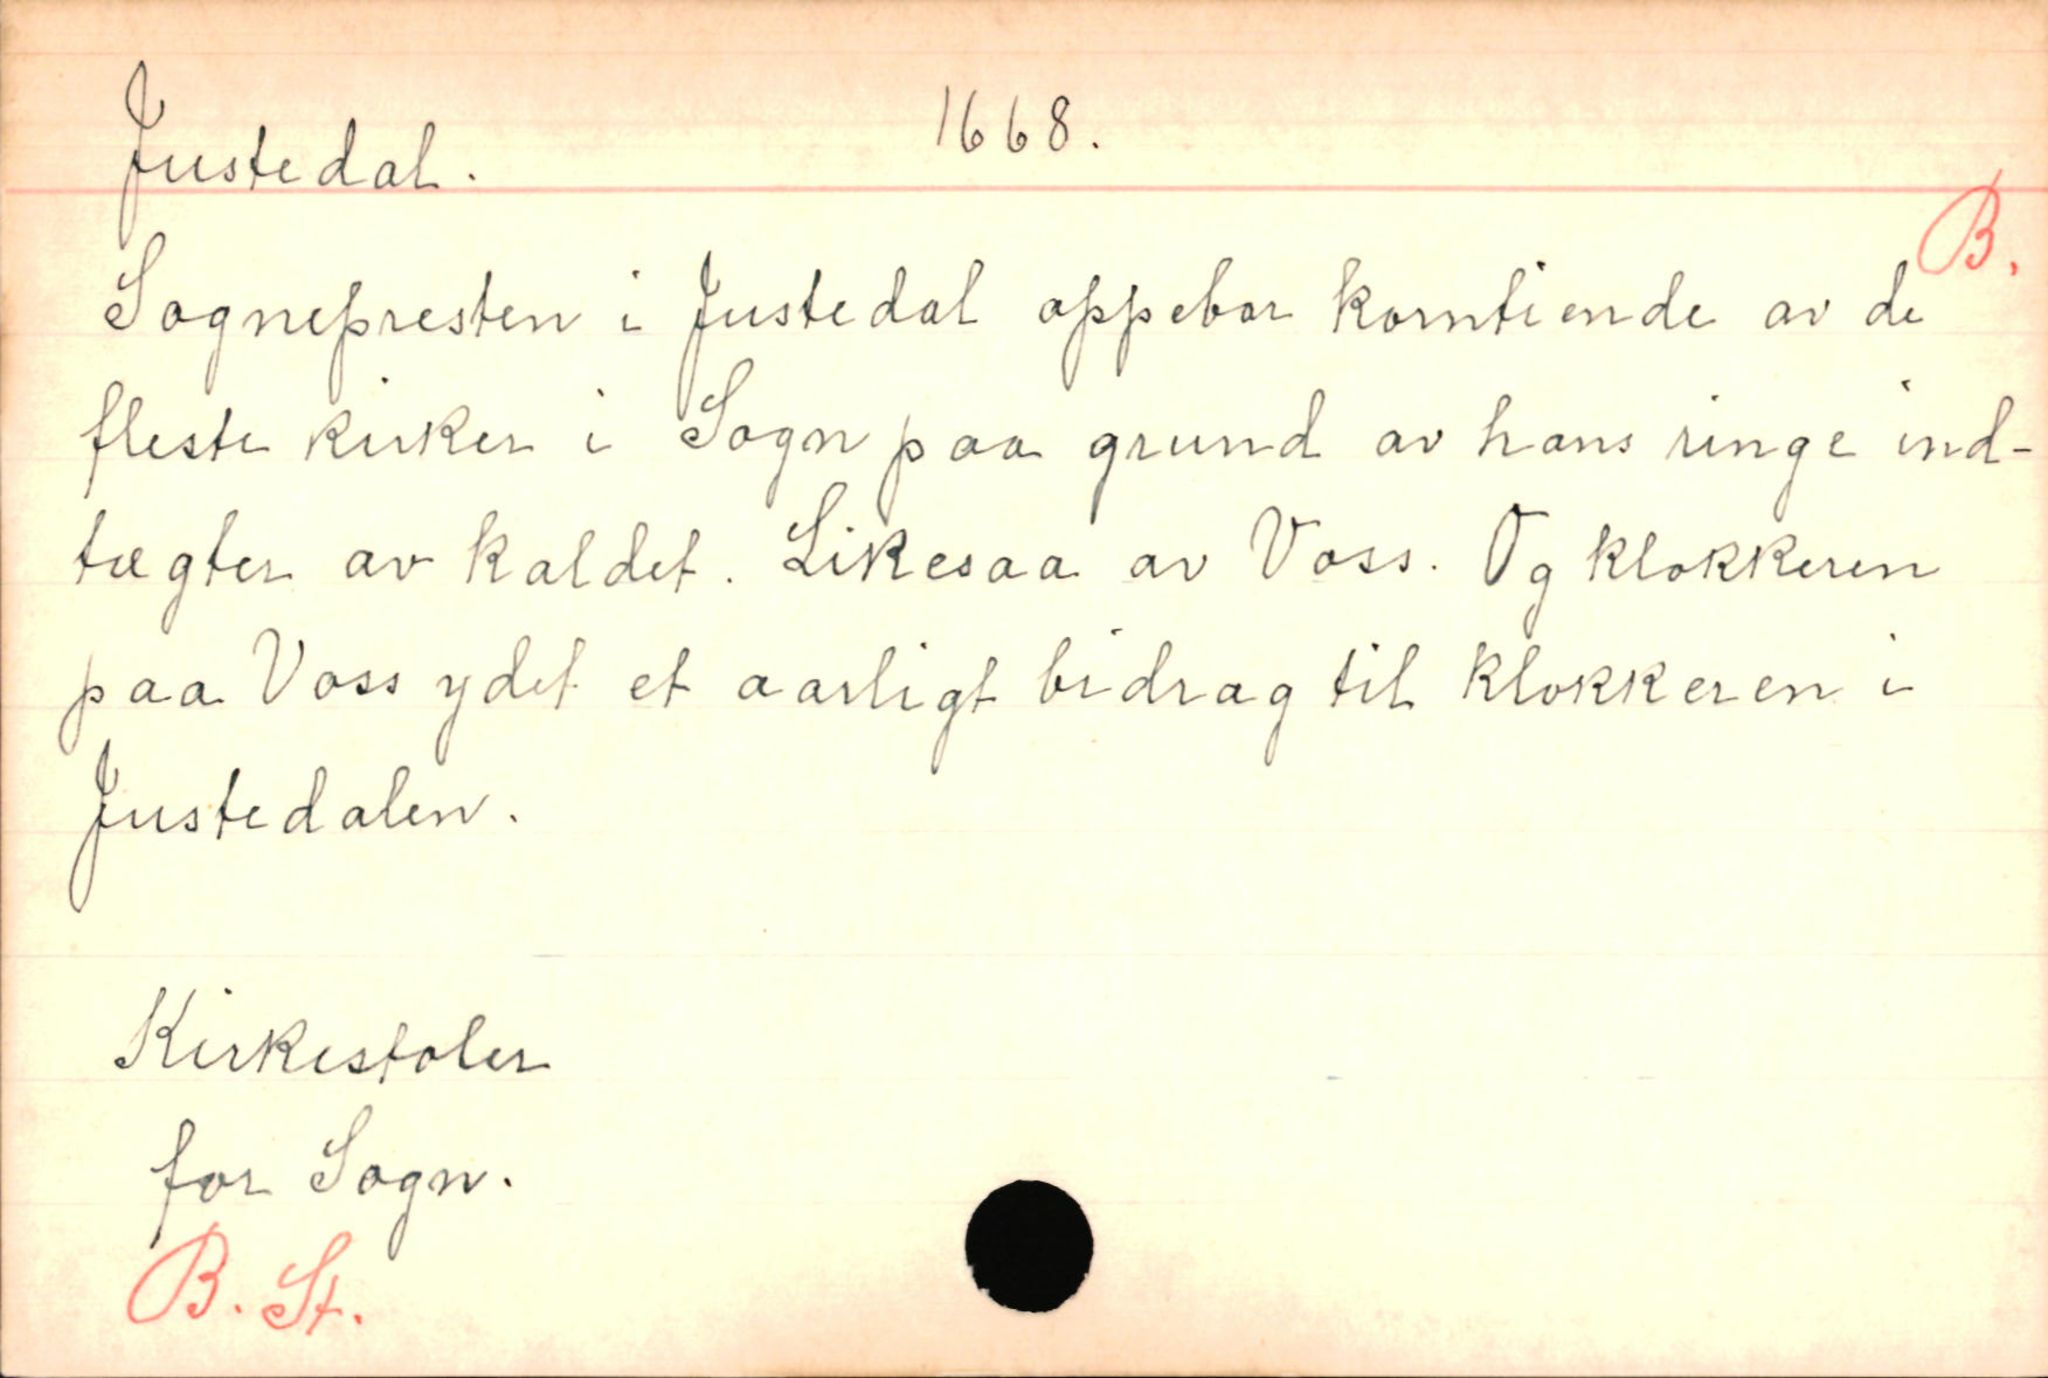 Justedal. 1668.
B.
Sognepresten i Justedal oppebar korntiende av de
fleste kirker i Sogn paa grund av hans ringe ind-
tægter av kaldet. Likesaa av Voss. Og klokkeren
paa Voss ydet et aarligt bidrag til klokkeren i
Justedalen.
Kirkestoler
for Sogn.
B. St.